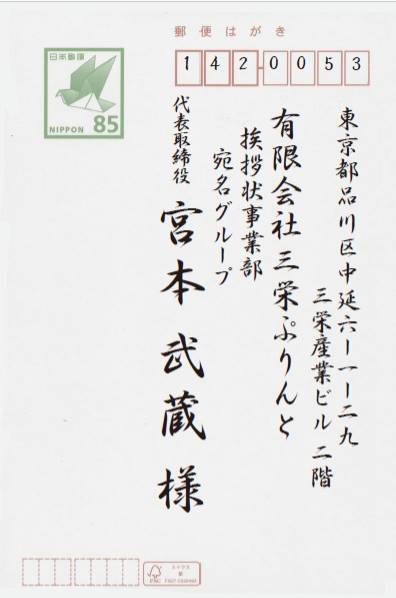 郵便はがき
日本郵便
NIPPON 85
142-0053
東京都品川区中延六ー一ー二九
三栄産業ビル二階
有限会社三栄ぷりんと
挨拶状事業部
宛名グループ
代表取締役
宮本武蔵様
ミックス
紙
FSC